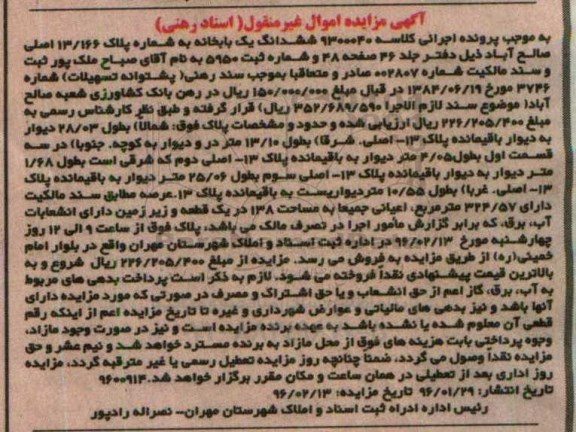 آگهی مزایده اموال غیر منقول( اسناد رهنی)
به موجب پرونده اجرائی کلاسه ۹۳۰۰۰۴۰ ششدانگ یک بابخانه به شماره پلاک ۱۳/۱۶۶ اصلی
صالح آباد ذیل دفتر جلد ۴۶ صفحه ۴۸ و شماره ثبت ۵۹۵۰ به نام آقای صباح ملک پور ثبت
و سند مالکیت شماره ۰۰۲۸۰۷ صادر و متعاقبا بموجب سند رهنی( پشتوانه تسهیلات) شماره
۳۷۴۶ مورخ ۱۳۸۴/۰۶/۱۹ در قبال مبلغ ۱۵۰/۰۰۰/۰۰۰ ریال در رهن بانک کشاورزی شعبه صالح
آباد( موضوع سند لازم الاجرا ۳۵۲/۶۸۹/۵۹۰ ریال) قرار گرفته و طبق نظر کارشناس رسمی به
مبلغ ۲۲۶/۲۰۵/۴۰۰ ریال ارزیابی شده و حدود و مشخصات پلاک فوق: شمالاً) بطول ۲۸/۰۳ دیوار
به دیوار باقیمانده پلاک ۱۳- اصلی. شرقا) بطول ۱۳/۱۰ متر در و دیوار به کوچه. جنوبا) در سه
قسمت اول بطول ۴/۰۵ متر دیوار به باقیمانده پلاک ۱۳- اصلی دوم که شرقی است بطول ۱/۶۸
متر دیوار به دیوار باقیمانده پلاک ۱۳- اصلی سوم بطول ۲۵/۰۶ متر دیوار به باقیمانده پلاک
۱۳- اصلی. غربا) بطول ۱۰/۵۵ متردیواریست به باقیمانده پلاک ۱۳.عرصه مطابق سند مالکیت
دارای ۳۲۴/۵۷ مترمربع، اعیانی جمیعا به مساحت ۱۳۸ در یک قطعه و زیر زمین دارای انشعابات
آب، برق، که برابر گزارش مأمور اجرا در تصرف مالک می باشد، پلاک فوق از ساعت ۹ الی ۱۲ روز
چهارشنبه مورخ ۹۶/۰۲/۱۳ در اداره ثبت اسناد و املاک شهرستان مهران واقع در بلوار امام
خمینی(ره) از طریق مزایده به فروش می رسد. مزایده از مبلغ ۲۲۶/۲۰۵/۴۰۰ ریال شروع و به
بالاترین قیمت پیشنهادی نقداً فروخته می شود. لازم به ذکر است پرداخت بدهی های مربوط
به آب، برق، گاز اعم از حق انشعاب و یا حق اشتراک و مصرف در صورتی که مورد مزایده دارای
آنها باشد و نیز بدهی های مالیاتی و عوارض شهرداری و غیره تا تاریخ مزایده اعم از اینکه رقم
قطعی آن معلوم شده یا نشده باشد به عهده برنده مزایده است و نیز در صورت وجود مازاد،
وجوه پرداختی بابت هزینه های فوق از محل مازاد به برنده مسترد خواهد شد و نیم عشر و حق
مزایده نقداً وصول می گردد، ضمناً چنانچه روز مزایده تعطیل رسمی یا غیر مترقبه گردد، مزایده
روز اداری بعد از تعطیلی در همان ساعت و مکان مقرر برگزار خواهد شد.۹۶۰۰۹۱۴
تاریخ انتشار: ۹۶/۰۱/۲۹ تاریخ مزایده: ۹۶/۰۲/۱۳
رئیس اداره ادراه ثبت اسناد و املاک شهرستان مهران- نصراله رادپور